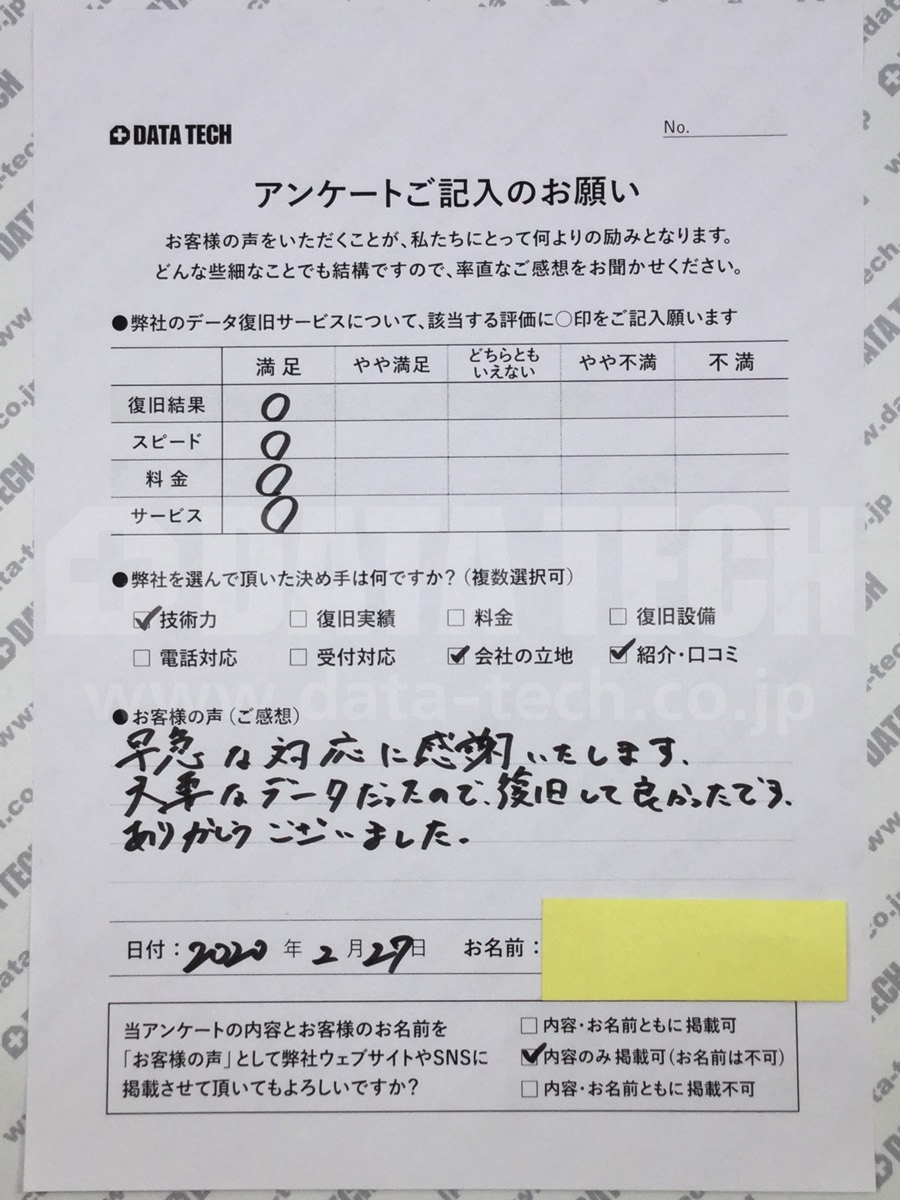 DATA TECH
No.
アンケートご記入のお願い
お客様の声をいただくことが、私たちにとって何よりの励みとなります。
どんな些細なことでも結構ですので、率直なご感想をお聞かせください。
●弊社のデータ復旧サービスについて、該当する評価に○印をご記入願います
満足 やや満足 どちらとも いえない やや不満 不満
復旧結果 ○
スピード ○
料金 ○
サービス ○
●弊社を選んで頂いた決め手は何ですか?(複数選択可)
☑技術力 □復旧実績 □料金 □復旧設備
□電話対応 □受付対応 ☑会社の立地 ☑紹介・口コミ
www.data-tech.co.jp
●お客様の声(ご感想)
早急な対応に感謝いたします、
大事なデータだったので、復旧して良かったです、
ありがとうございました。
日付:2020年2月27日 お名前:
当アンケートの内容とお客様のお名前を
「お客様の声」として弊社ウェブサイトやSNSに
掲載させて頂いてもよろしいですか?
□内容・お名前ともに掲載可
☑内容のみ掲載可(お名前は不可)
□内容・お名前ともに掲載不可